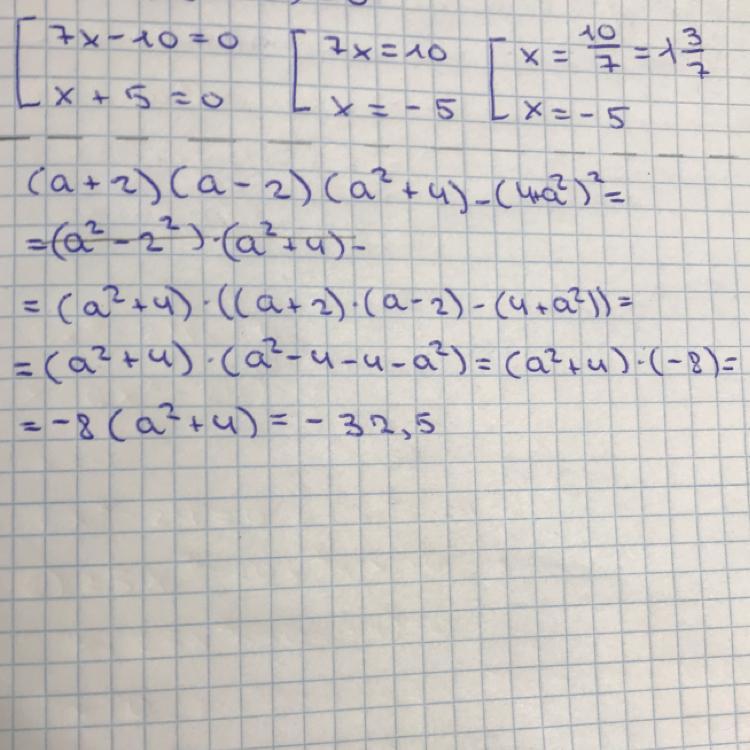 7x-10=0 7x=10 x=10/7=1 3/7
x+5=0 x=-5 x=-5
(a+2)(a-2)(a²+4)-(4+a²)²=
=(a²-2²)·(a²+4)-
=(a²+4)·((a+2)·(a-2)-(4+a²))=
=(a²+4)·(a²-4-4-a²)=(a²+4)·(-8)=
=-8(a²+4)=-32,5